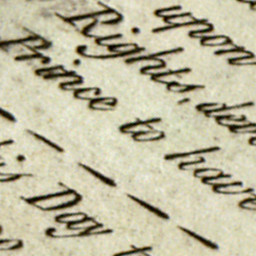 upon
Rights, de
Prince to have
is Day